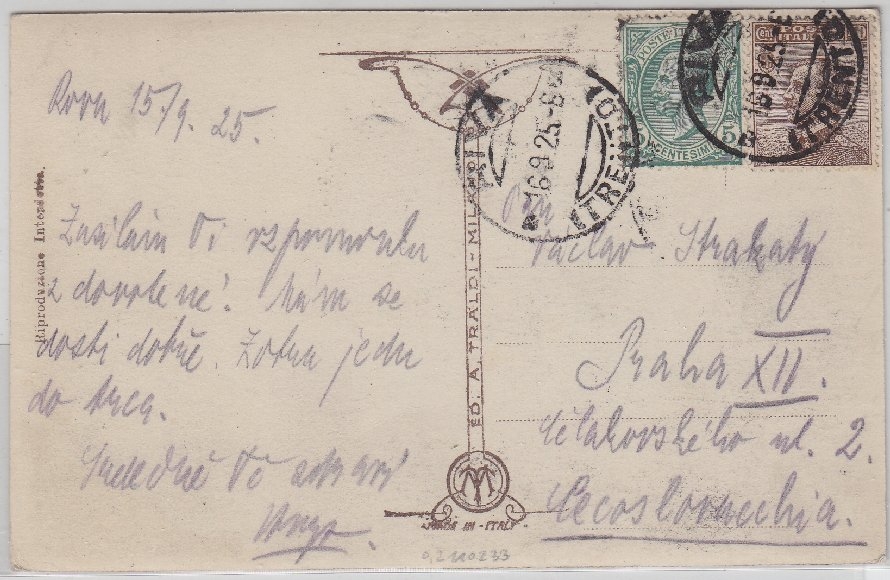 Riva 15/9. 25.
Zasílám Ti vzpomínku
z dovolené. Mám se
dosti dobře. Zotra jedu
do
Srdečně Tě zdraví
Riproduzione Interdetta.
ED. A. TRALDI - MILANO
MADE IN - ITALY
RIVA
16.9.25.-8
(TRENTO)
POSTE ITALIANE
5
CENTESIMI
RIVA
16.9.25
(TRENTO)
Pan
Václav Strakatý
Praha XII.
Čelakovského ul. 2.
Cecoslovacchia.
0,2110233